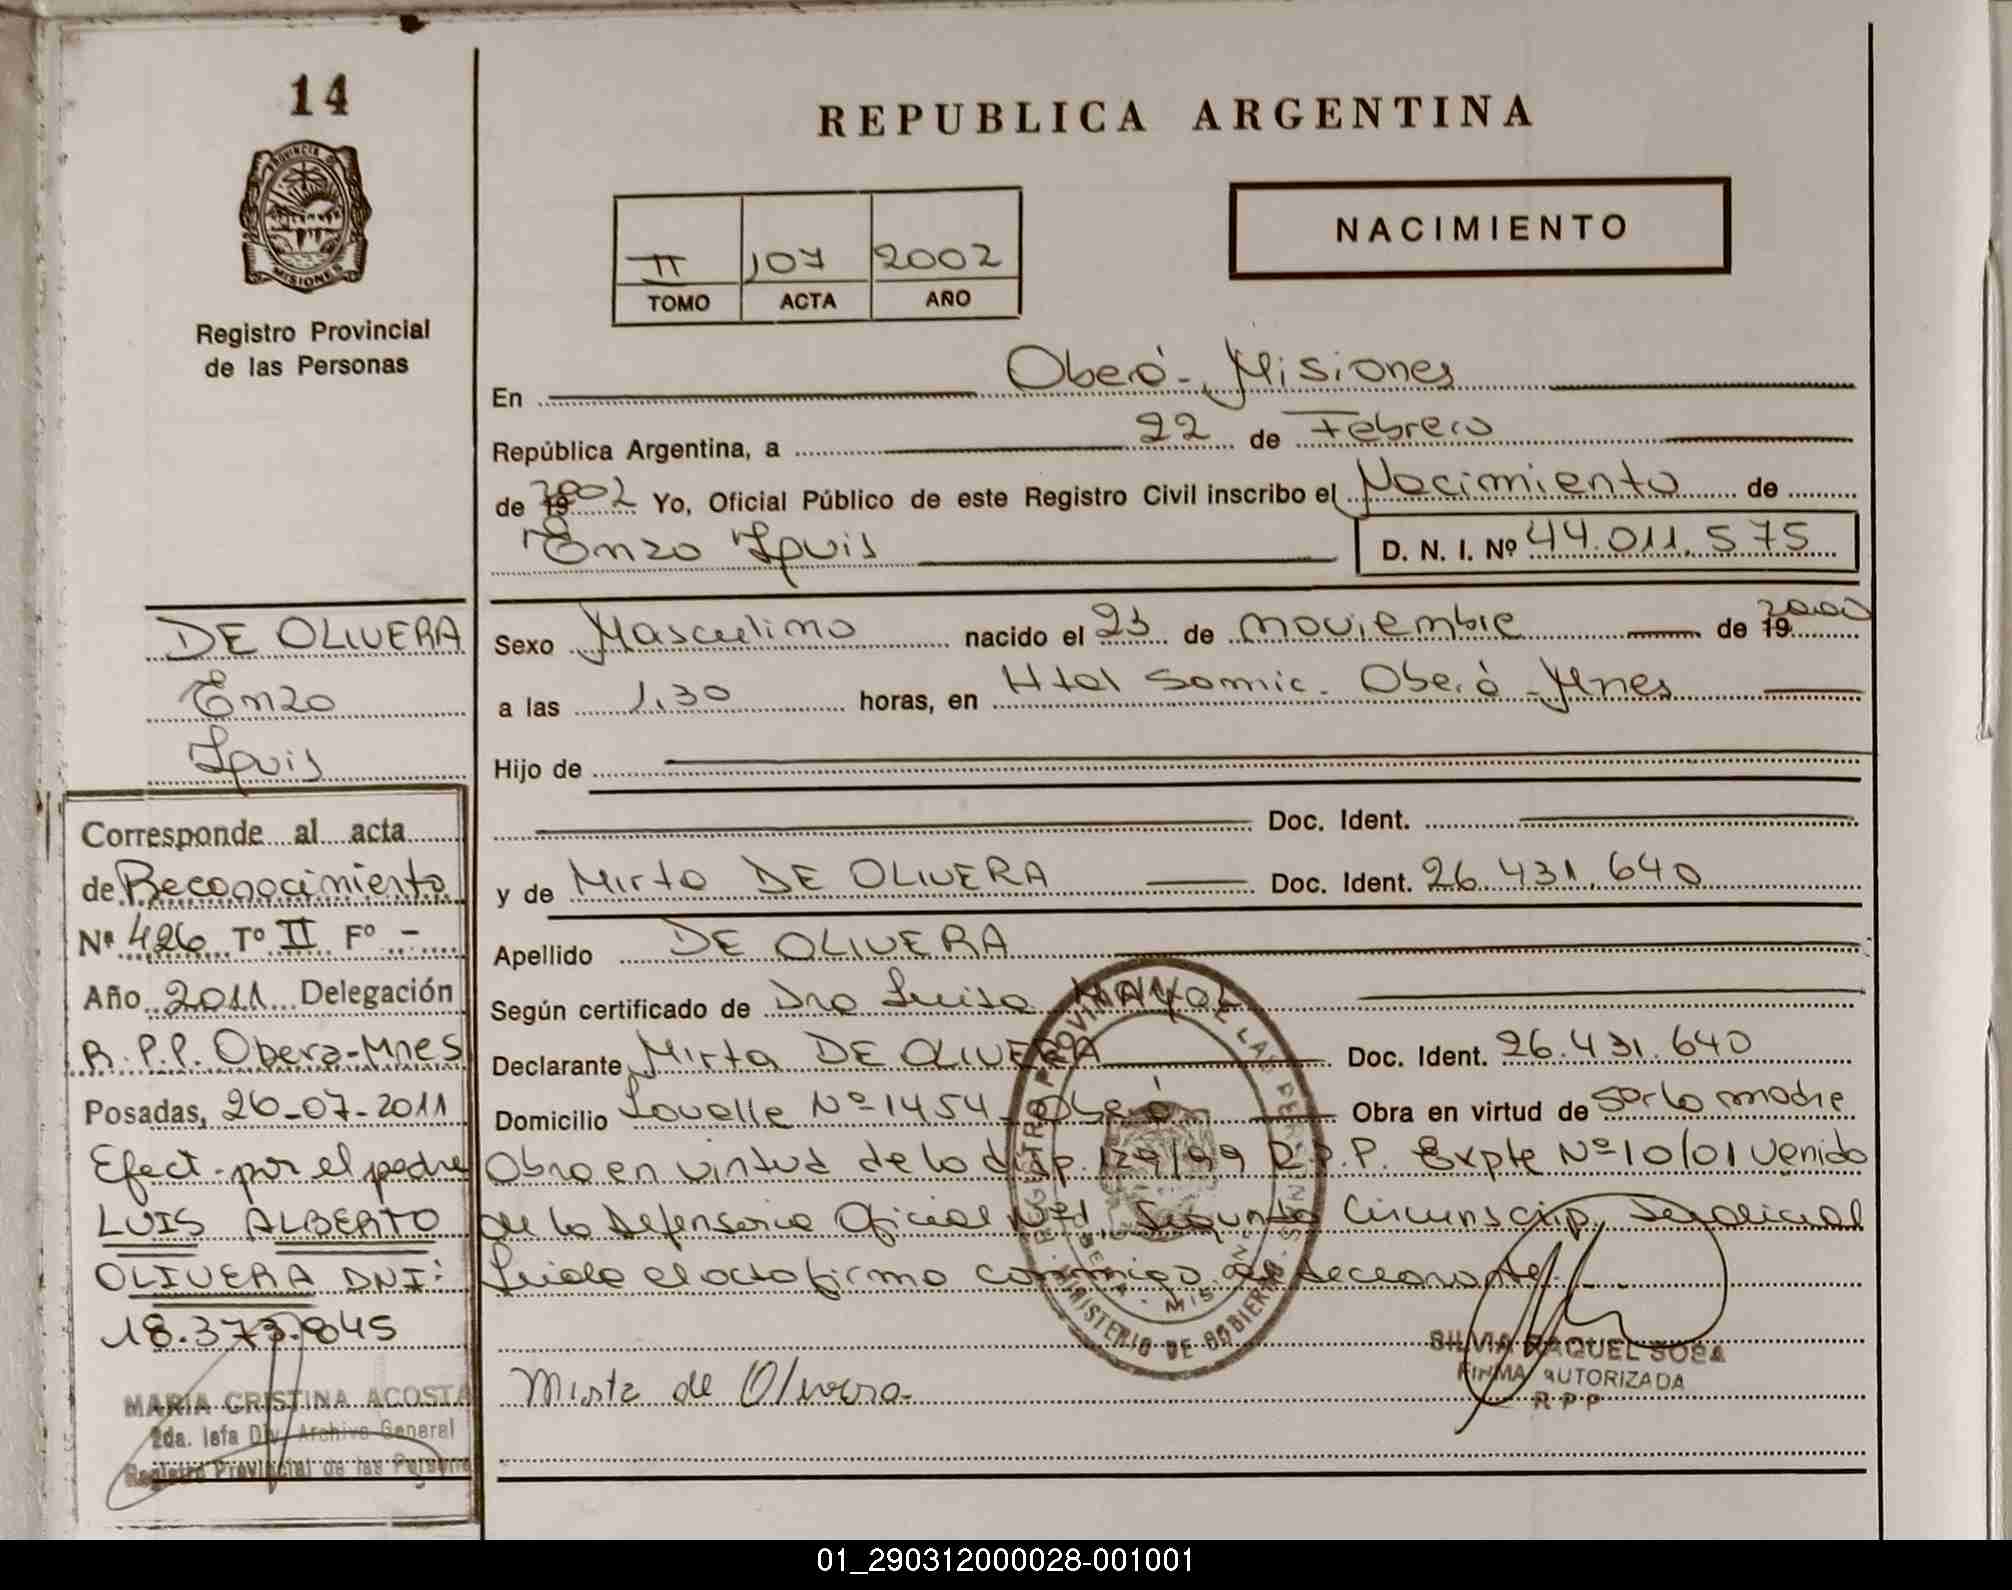 14
PROVINCIA DE
MISIONES
Registro Provincial
de las Personas
REPUBLICA ARGENTINA
NACIMIENTO
II 107 2002
TOMO ACTA AÑO
En Oberá - Misiones
República Argentina, a 22 de Febrero
de 2002 Yo, Oficial Público de este Registro Civil inscribo el Nacimiento de
Enzo Luis D. N. I. Nº 44.011.575
DE OLIVERA
Enzo
Luis
Sexo Masculino nacido el 23 de noviembre de 2000
a las 1,30 horas, en Htal Samic - Oberá - Mnes
Hijo de
Doc. Ident.
y de Mirta DE OLIVERA Doc. Ident. 26.431.640
Apellido DE OLIVERA
Según certificado de Dra Luisa MAYOL
Declarante Mirta DE OLIVERA Doc. Ident. 26.431.640
Domicilio Lavalle Nº 1454 - Oberá Obra en virtud de ser la madre
Obra en virtud de la disp. 129/99 R.P.P. Expte Nº 10/01 venido
de la Defensoria Oficial Nº 1, Segunda Circunscrip. Judicial
Leida el acta firma conmigo la declarante.
Mirta de Olivera.
SILVIA RAQUEL SOSA
FIRMA AUTORIZADA
R P P
Corresponde al acta
de Reconocimiento
Nº 426 Tº II Fº -
Año 2011 Delegación
R.P.P. Obera-Mnes
Posadas, 26-07-2011
Efect. por el padre
LUIS ALBERTO
OLIVERA DNI:
18.373.845
MARIA CRISTINA ACOSTA
2da. Jefa Div. Archivo General
Registro Provincial de las Persona
REGISTRO PROVINCIAL DE LAS PERSONAS
MINISTERIO DE GOBIERNO
01_290312000028-001001